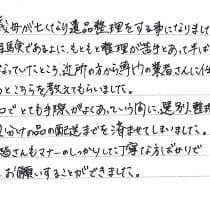 義母が亡くなり遺品整理をする事になりまし
経験であるように、もともと整理が苦手とあって手ば
なっていたところ、近所の方から専門の業者さんに任
とこちらを教えてもらいました。
ロでとても手際がよくあっという間に、選別、整理
見分けの品の配送までを済ませてしまいました。
皆さんもマナーのしっかりした丁寧な方ばかりで
お願いすることができました。